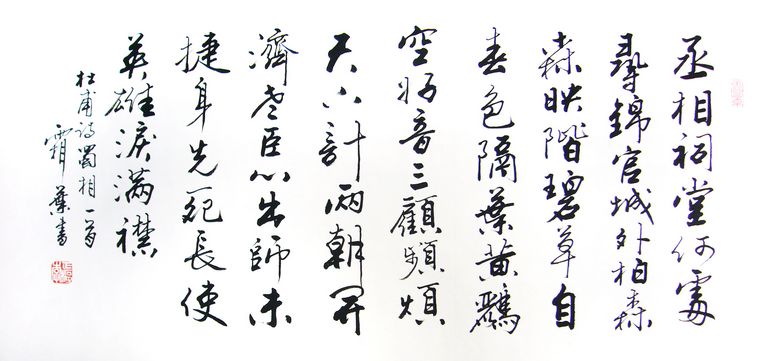 丞相祠堂何處
尋錦官城外柏森
森映階碧草自
春色隔葉黃鸝
空好音三顧頻煩
天下計兩朝開
濟老臣心出師未
捷身先死長使
英雄淚滿襟
杜甫詩蜀相一首
霜葉書